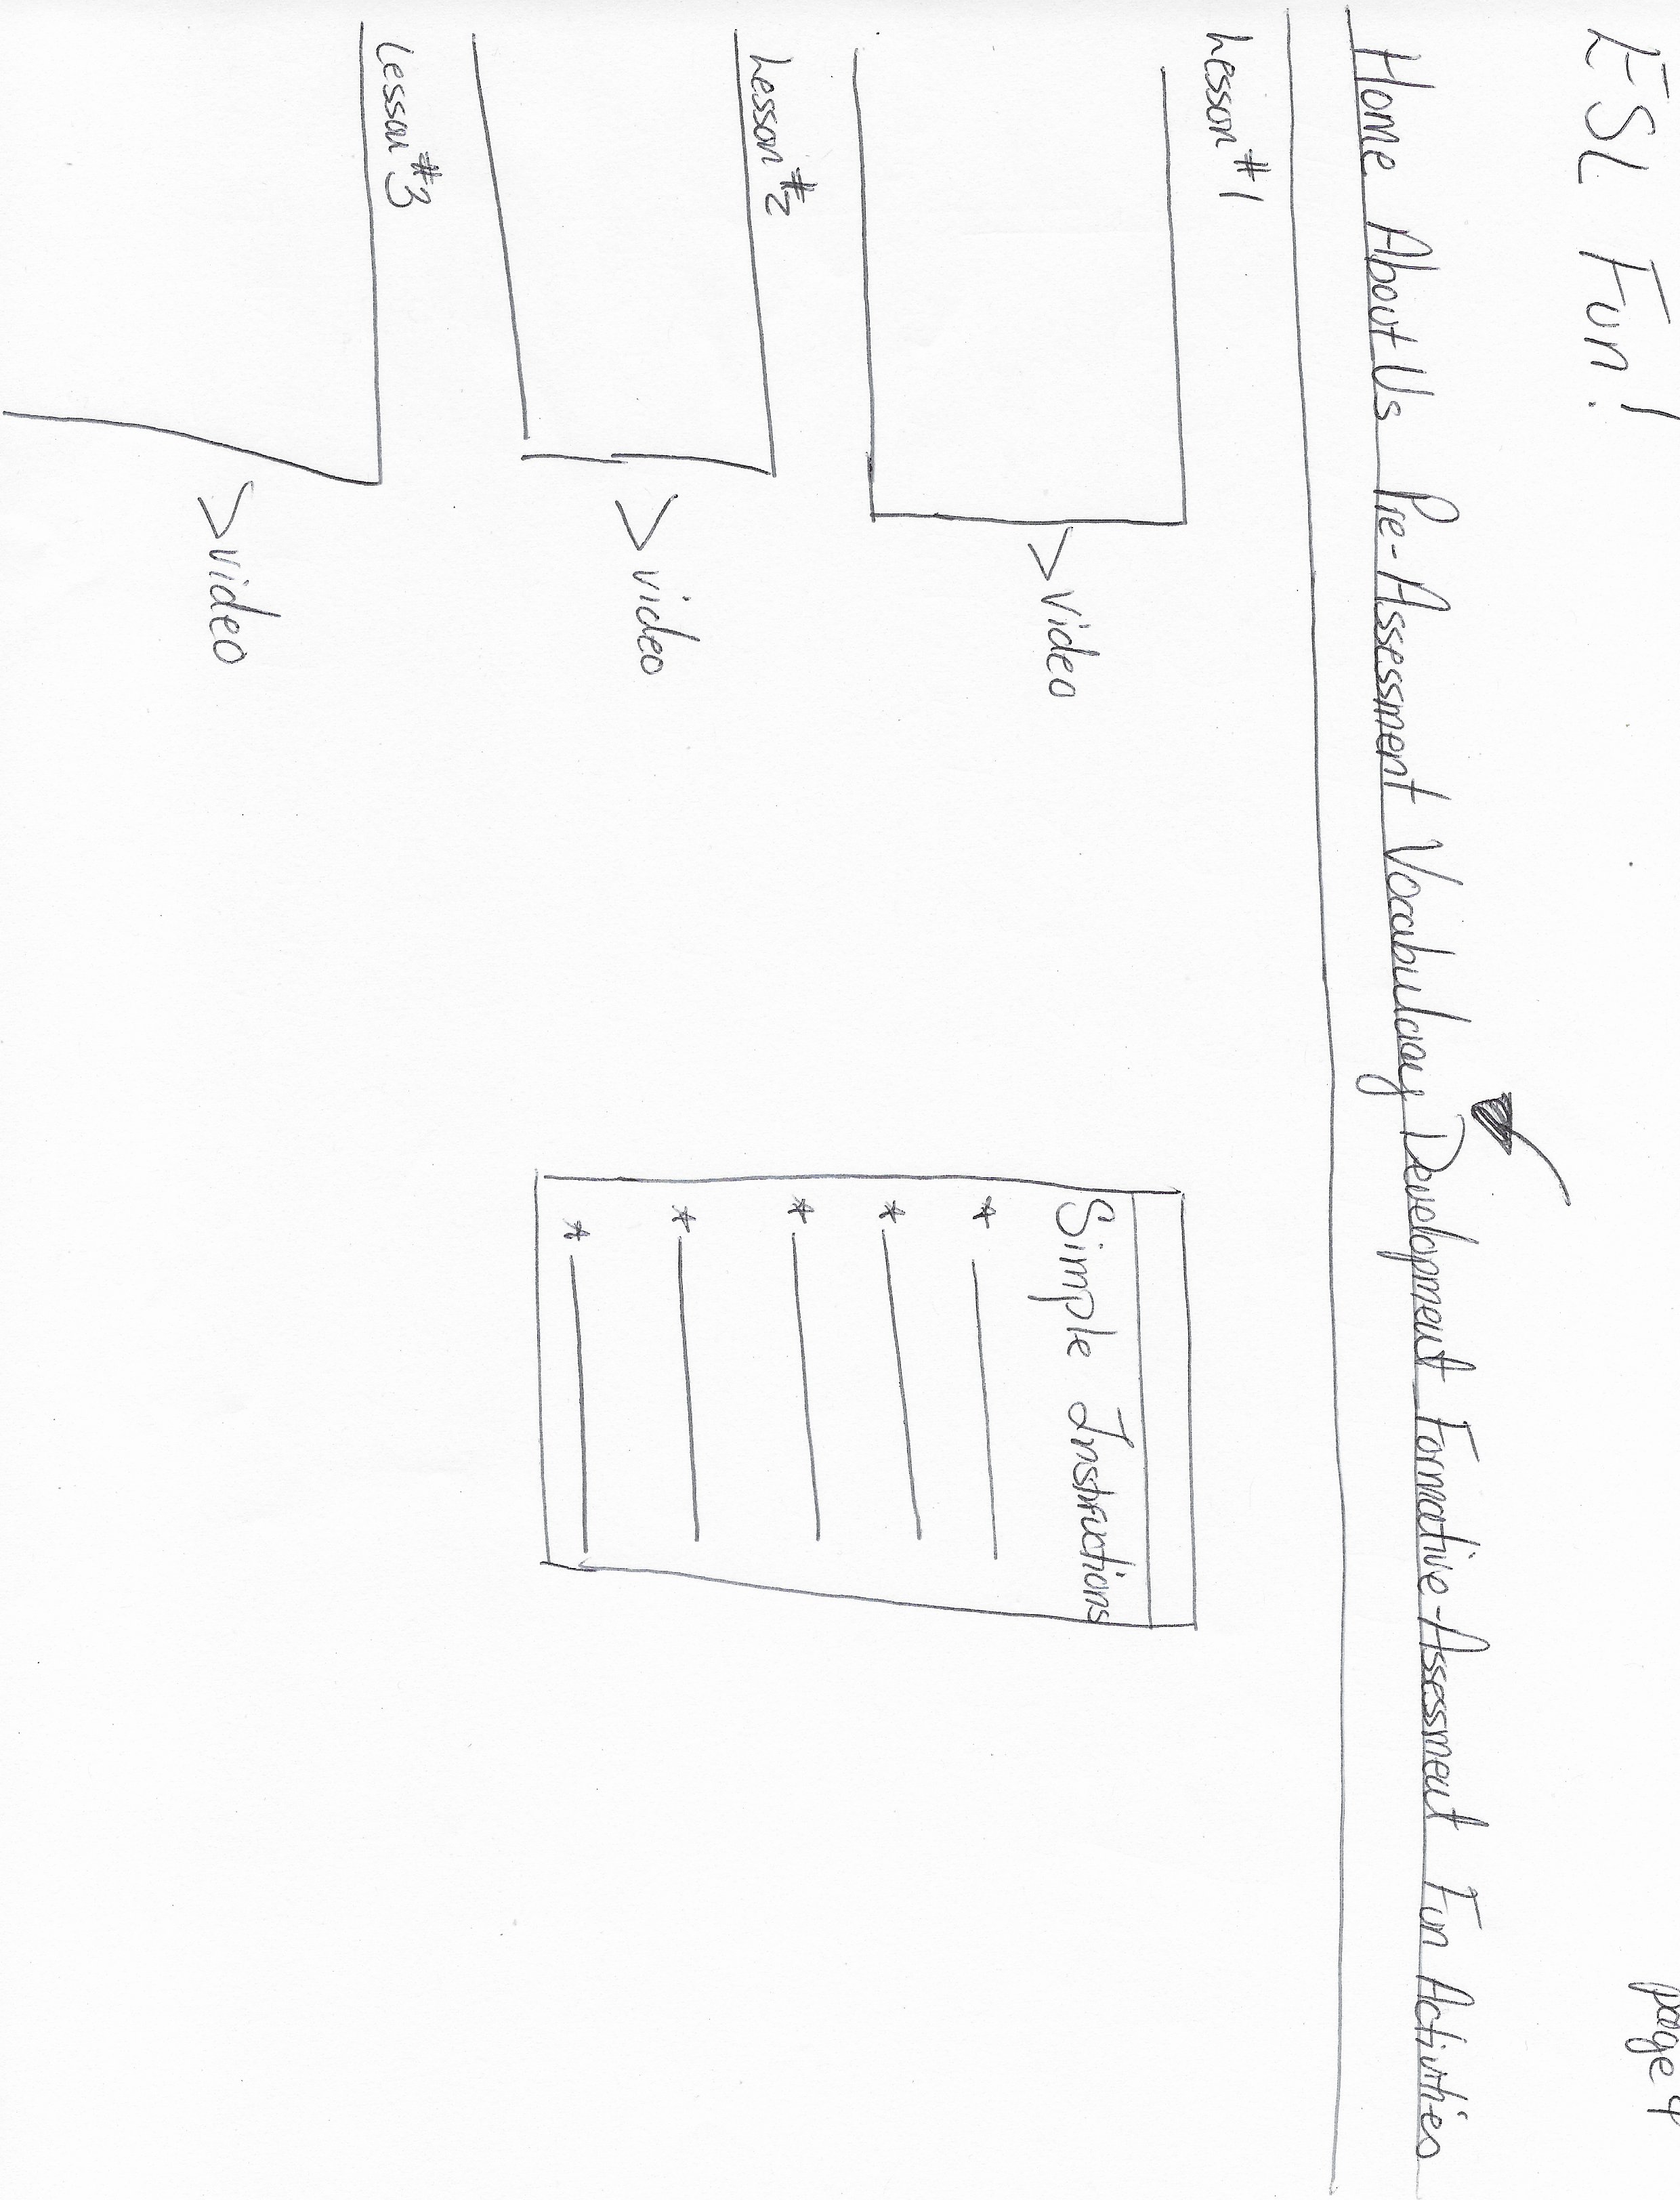 page 4
ESL Fun!
Home About Us Pre-Assessment Vocabulary Development Formative-Assessment Fun Activities
Lesson #1
>video
Lesson #2
>video
Lesson #3
>video
Simple Instructions
*
*
*
*
*